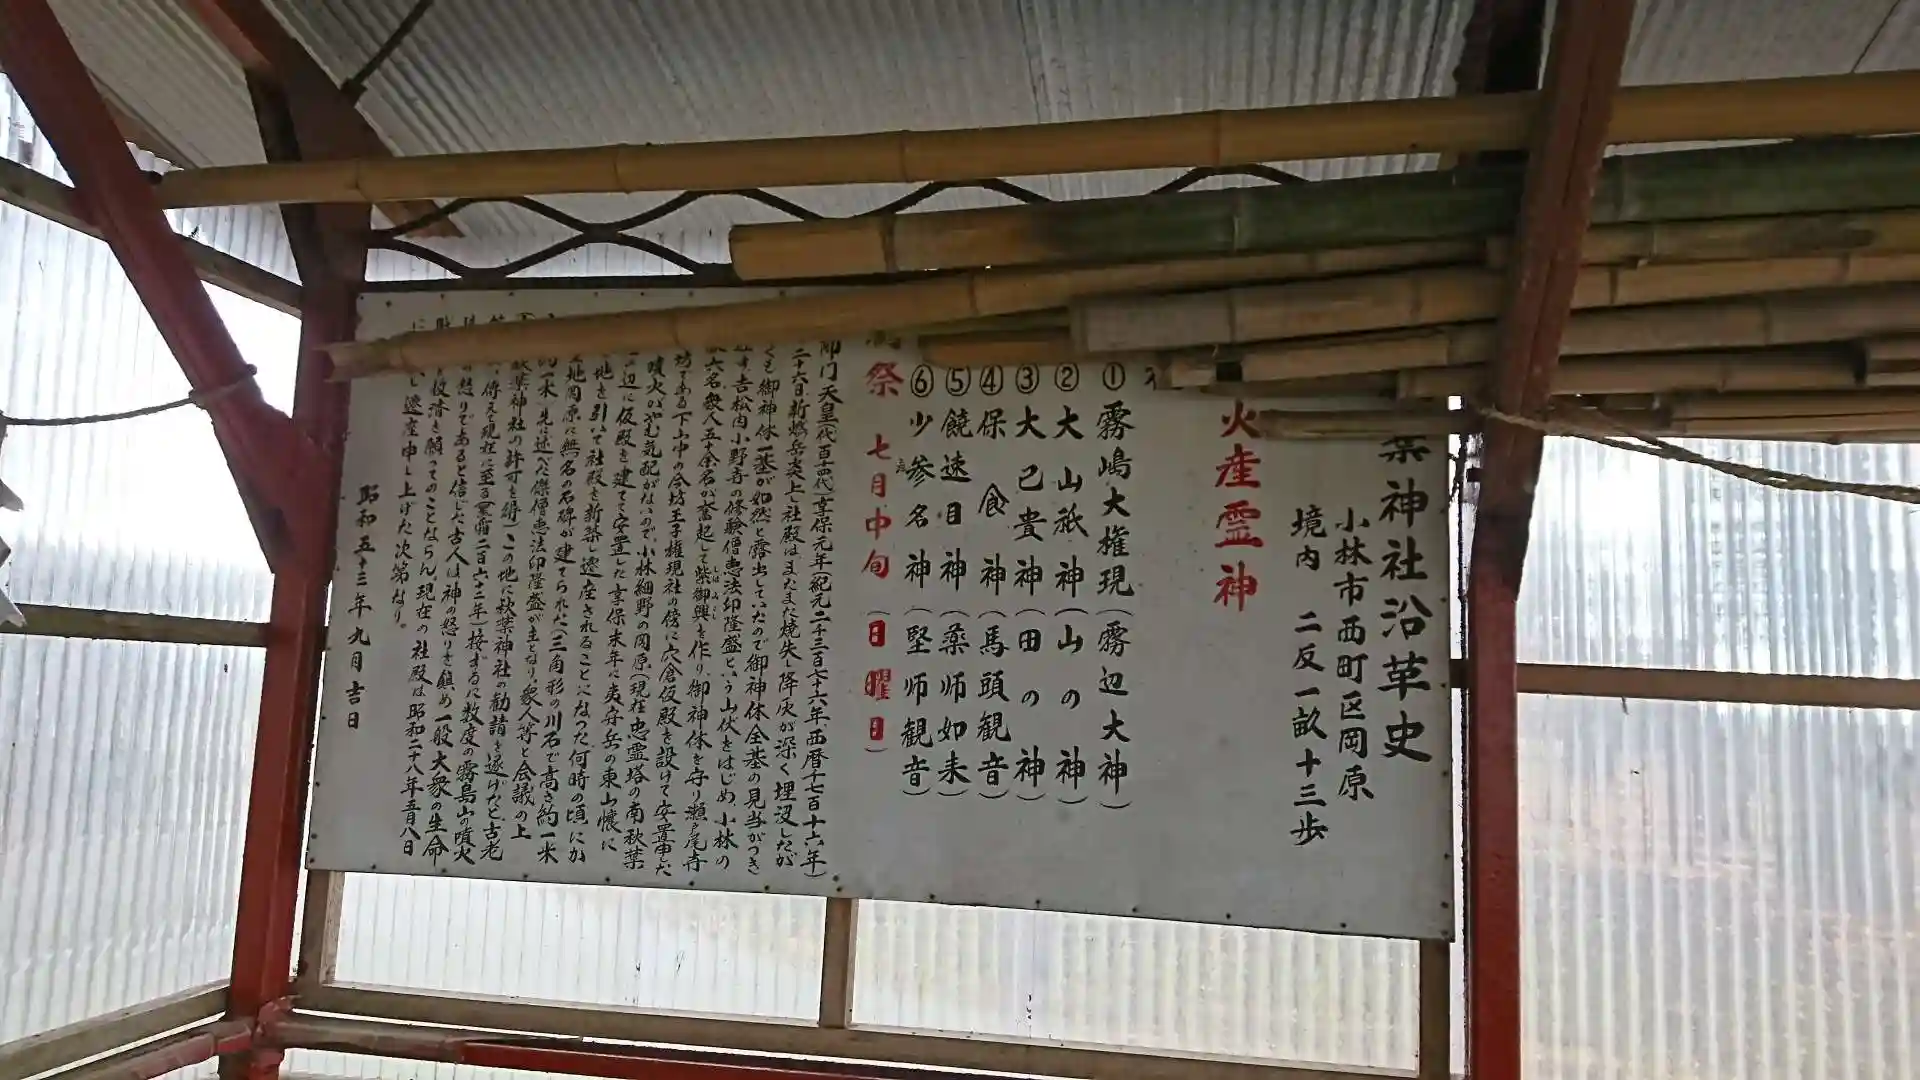 葉神社沿革史
小林市西町区岡原
境内 二反一畝十三歩
火産霊神
①霧嶋大権現(霧辺大神)
②大山祇神(山の神)
③大己貴神(田の神)
④保食神(馬頭観音)
⑤饒速日神(薬师如来)
⑥少参名神(堅师観音)
祭 七月中旬(日曜日)
御門天皇(代百十四代)享保元年(紀元二千三百七十六年、西暦千七百十六年)
二十六日新燃岳炎上し社殿はまたまた焼失し降灰が深く埋没したが
くも御神体一基が如然と露出していたので御神体全基の見当がつき
吉松内小野寺の修験僧恵法印隆盛という山伏をはじめ、小林の
六名、衆人五十余名が奮起して紫御輿を作り、御神体を守り瀬戸尾寺
坊である下山中の今坊王子権現社の傍に穴倉仮殿を設けて安置申した
噴火が止む気配がないので、小林細野の岡原(現在忠霊塔の南秋葉
辺に仮殿を建てて安置した享保末年に夷守岳の東山懐に
地を引いて社殿を新築し遷座されることになった何時の頃にか
地岡原に無名の石碑が建てられた(三角形の川石で高さ約一米
米)先に述べた傑僧恵法印隆盛が主となり、衆人等と会議の上
秋葉神社の許可を得)この地に秋葉神社の勧請を遂げたと古老
伝え現在に至る(星霜二百六十二年)接ずるに数度の霧島山の噴火
の怒りであると信じた古人は神の怒りを鎮め一般大衆の生命
救済を願ってのことならん、現在の社殿は昭和二十八年五月八日
し遷座申し上げた次第なり。
昭和五十三年九月吉日